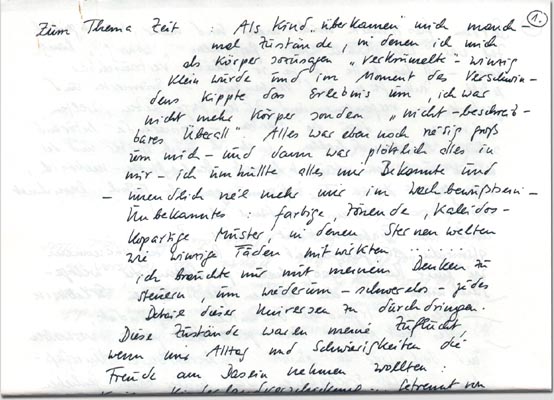 Zum Thema Zeit : Als Kind „überkamen" mich manch- 1.
mal Zustände, in denen ich mich
als Körper sozusagen „verkrümelte" - winzig
klein wurde und im Moment des Verschwin-
dens kippte das Erlebnis um, ich war
nicht mehr Körper sondern „nicht-beschreib-
bares Überall". Alles was eben noch riesig groß
um mich - und dann war plötzlich alles in
mir - ich umhüllte alles mir Bekannte und
- unendlich viel mehr mir im Wachbewußtsein -
Unbekanntes : farbige, tönende, Kaleidos-
kopartige Muster, in denen Sternenwelten
wie winzige Fäden mitwirkten ......
ich brauchte nur mit meinem Denken zu
steuern, um wiederum - schwerelos - jedes
Detail dieser Universen zu durchdringen.
Diese Zustände waren meine Zuflucht,
wenn mir Alltag und Schwierigkeiten die
Freude am Dasein nehmen wollten :
getrennt von